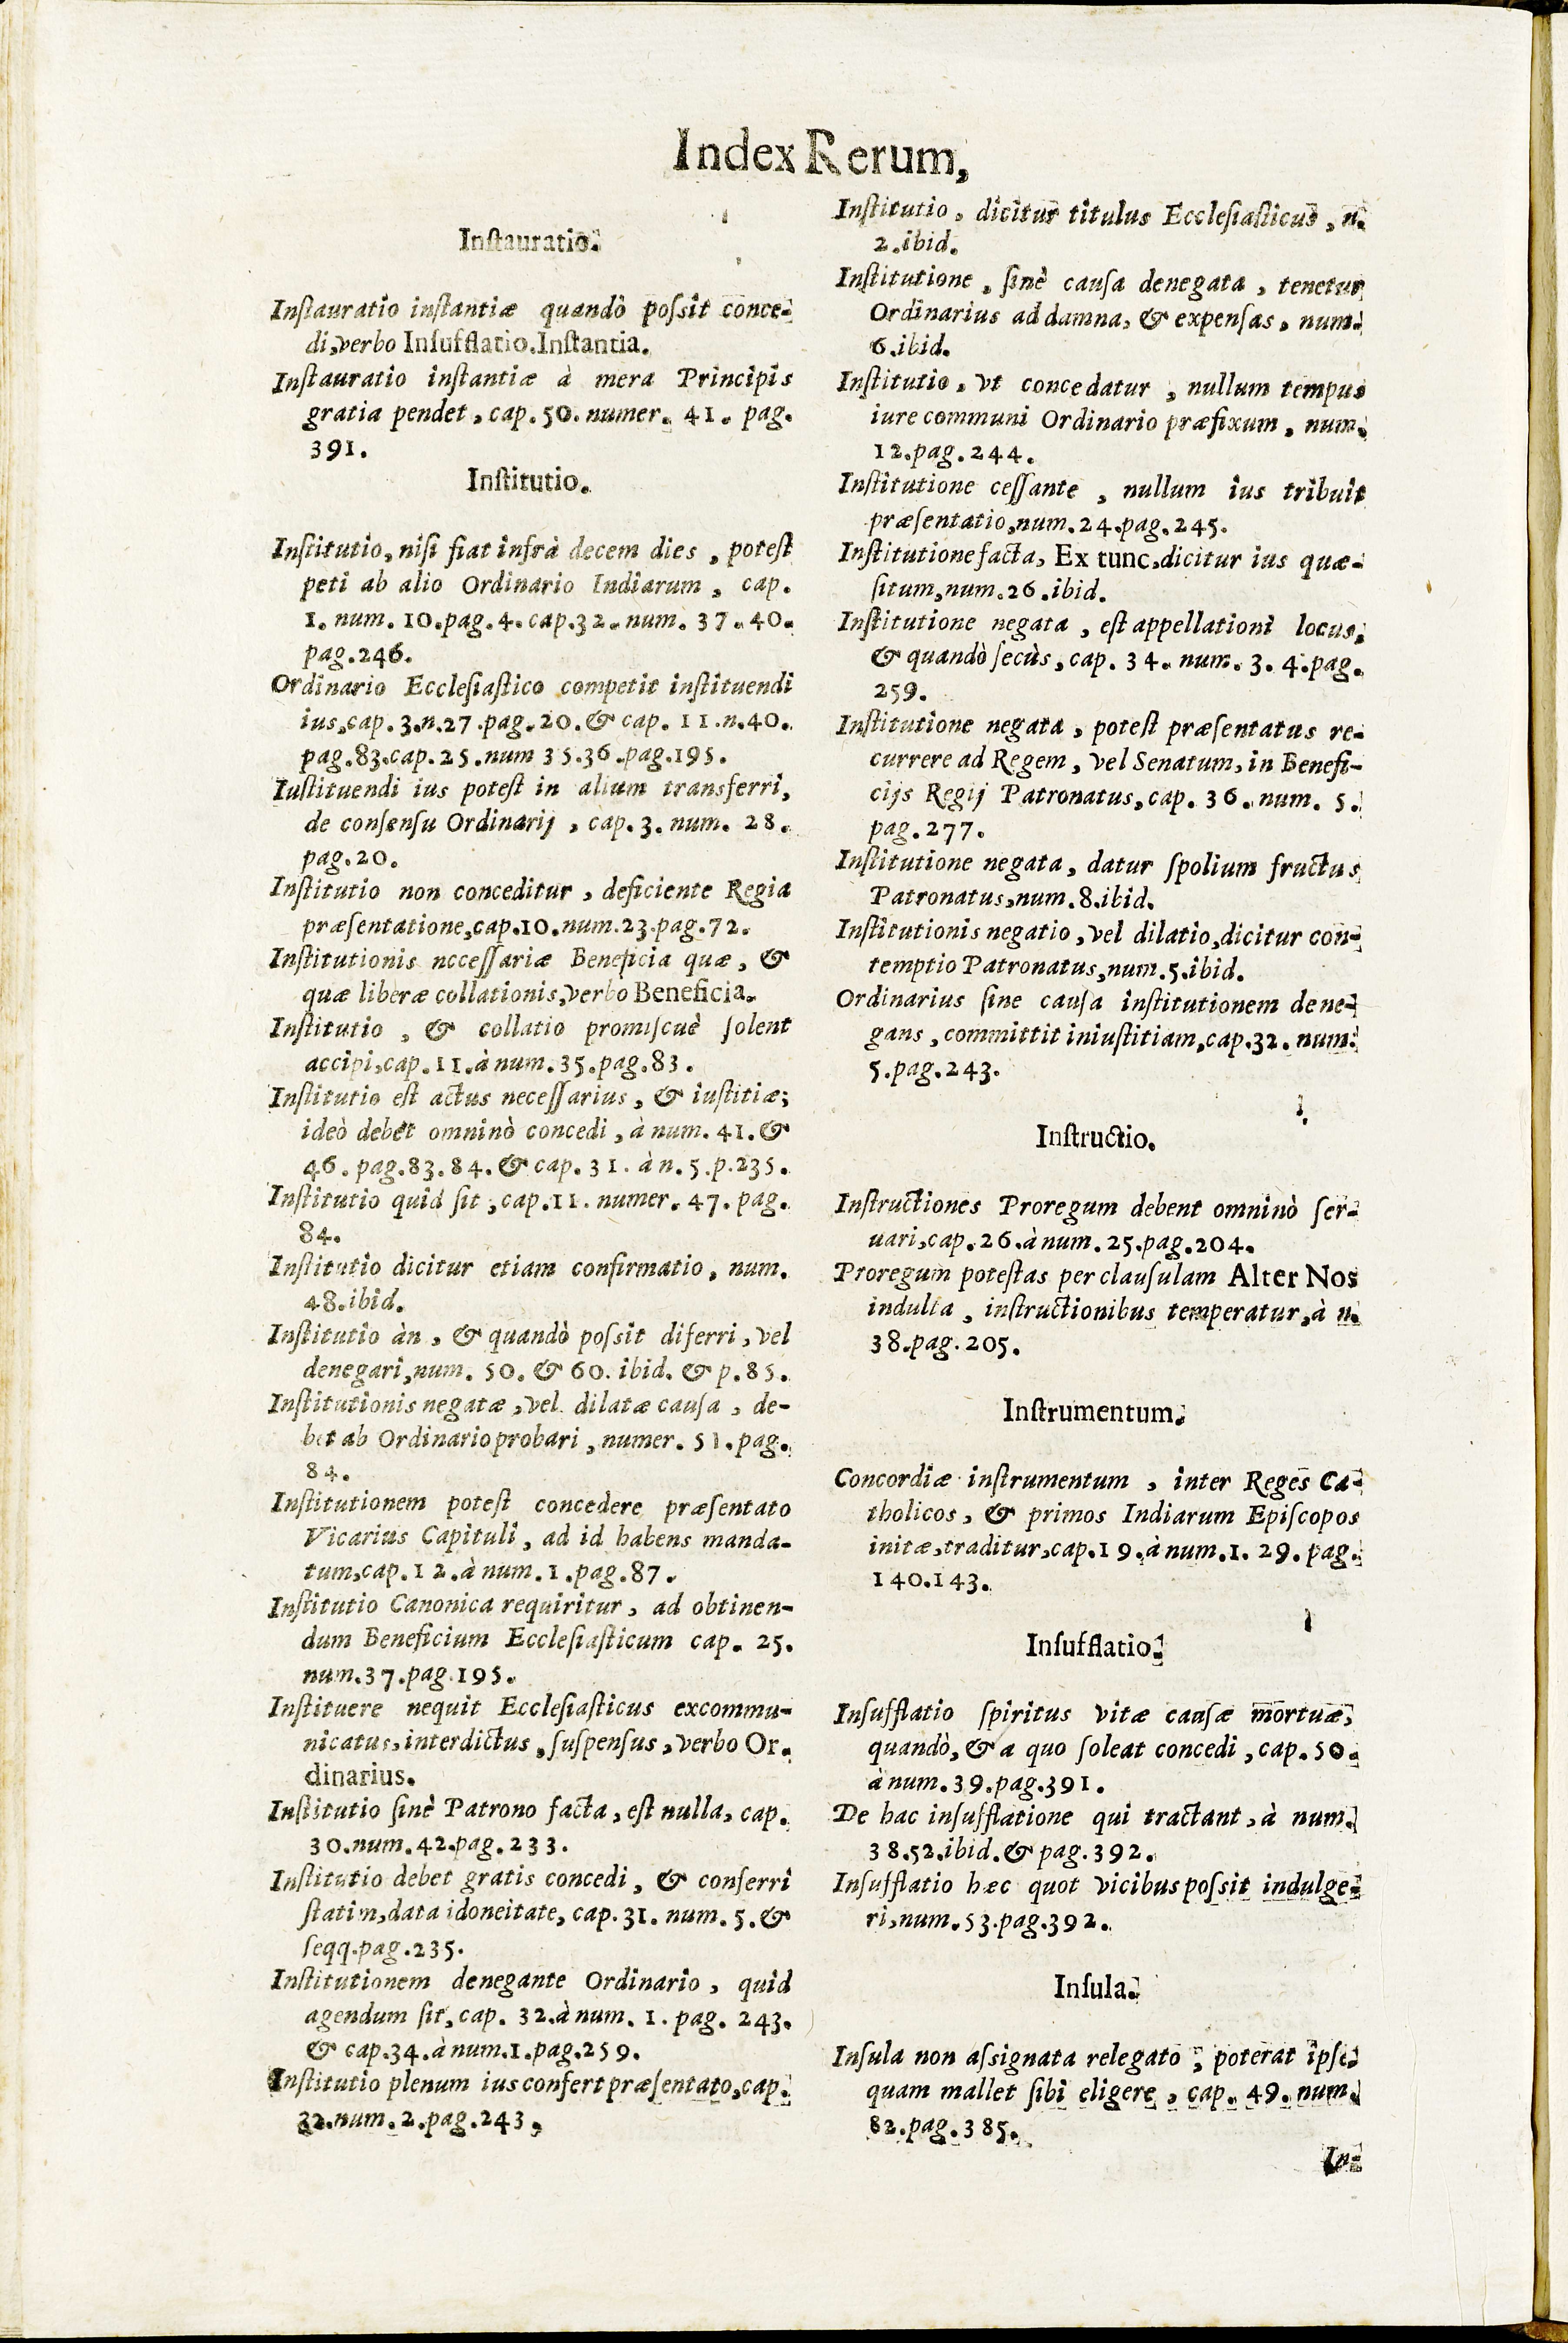 Index Rerum,
Instauratio.
Instauratio instantiæ quandò possit conce-
di, verbo Insufflatio. Instantia.
Instauratio instantiæ à mera Principis
gratia pendet, cap. 50. numer. 41. pag.
391.
Institutio.
Institutio, nisi fiat infrà decem dies, potest
peti ab alio Ordinario Indiarum, cap.
1. num. 10. pag. 4. cap. 32. num. 37. 40.
pag. 246.
Ordinario Ecclesiastico competit instituendi
ius, cap. 3. n. 27. pag. 20. & cap. 11. n. 40.
pag. 83. cap. 25. num 35. 36. pag. 195.
Iustituendi ius potest in alium transferri,
de consensu Ordinarij, cap. 3. num. 28.
pag. 20.
Institutio non conceditur, deficiente Regia
præsentatione, cap. 10. num. 23. pag. 72.
Institutionis nccessariæ Beneficia quæ, &
quæ liberæ collationis, verbo Beneficia.
Institutio, & collatio promiscuè solent
accipi, cap. 11. à num. 35. pag. 83.
Institutio est actus necessarius, & iustitiæ;
ideò debet omninò concedi, à num. 41. &
46. pag. 83. 84. & cap. 31. à n. 5. p. 235.
Institutio quid sit, cap. 11. numer. 47. pag.
84.
Institutio dicitur etiam confirmatio, num.
48. ibid.
Institutio àn, & quandò possit diferri, vel
denegari, num. 50. & 60. ibid. & p. 85.
Institutionis negatæ, vel dilatæ causa, de-
bet ab Ordinario probari, numer. 51. pag.
84.
Institutionem potest concedere præsentato
Vicarius Capituli, ad id habens manda-
tum, cap. 12. à num. 1. pag. 87.
Institutio Canonica requiritur, ad obtinen-
dum Beneficium Ecclesiasticum cap. 25.
num. 37. pag. 195.
Instituere nequit Ecclesiasticus excommu-
nicatus, interdictus, suspensus, verbo Or-
dinarius.
Institutio sinè Patrono facta, est nulla, cap.
30. num. 42. pag. 233.
Institutio debet gratis concedi, & conferri
statim, data idoneitate, cap. 31. num. 5. &
seqq. pag. 235.
Institutionem denegante Ordinario, quid
agendum sit, cap. 32. à num. 1. pag. 243.
& cap. 34. à num. 1. pag. 259.
Institutio plenum ius confert præsentato, cap.
32. num. 2. pag. 243,
Institutio, dicitur titulus Ecclesiasticus, n.
2. ibid.
Institutione, sinè causa denegata, tenetur
Ordinarius ad damna, & expensas, num.
6. ibid.
Institutio, vt concedatur, nullum tempus
iure communi Ordinario præfixum, num.
12. pag. 244.
Institutione cessante, nullum ius tribuit
præsentatio, num. 24. pag. 245.
Institutione facta, Ex tunc, dicitur ius quæ-
situm, num. 26. ibid.
Institutione negata, est appellationi locus,
& quandò secùs, cap. 34. num. 3. 4. pag.
259.
Institutione negata, potest præsentatus re-
currere ad Regem, vel Senatum, in Benefi-
cijs Regij Patronatus, cap. 36. num. 5.
pag. 277.
Institutione negata, datur spolium fructus
Patronatus, num. 8. ibid.
Institutionis negatio, vel dilatio, dicitur con-
temptio Patronatus, num. 5. ibid.
Ordinarius sine causa institutionem dene-
gans, committit iniustitiam, cap. 32. num.
5. pag. 243.
Instructio.
Instructiones Proregum debent omninò ser-
uari, cap. 26. à num. 25. pag. 204.
Proregum potestas per clausulam Alter Nos
indulta, instructionibus temperatur, à n.
38. pag. 205.
Instrumentum.
Concordiæ instrumentum, inter Reges Ca-
tholicos, & primos Indiarum Episcopos
initæ, traditur, cap. 19. à num. 1. 29. pag.
140. 143.
Insufflatio.
Insufflatio spiritus vitæ causæ mortuæ,
quandò, & a quo soleat concedi, cap. 50.
à num. 39. pag. 391.
De hac insufflatione qui tractant, à num.
38. 52. ibid. & pag. 392.
Insufflatio hæc quot vicibus possit indulge-
ri, num. 53. pag. 392.
Insula.
Insula non assignata relegato, poterat ipse
quam mallet sibi eligere, cap. 49. num.
82. pag. 385.
In-